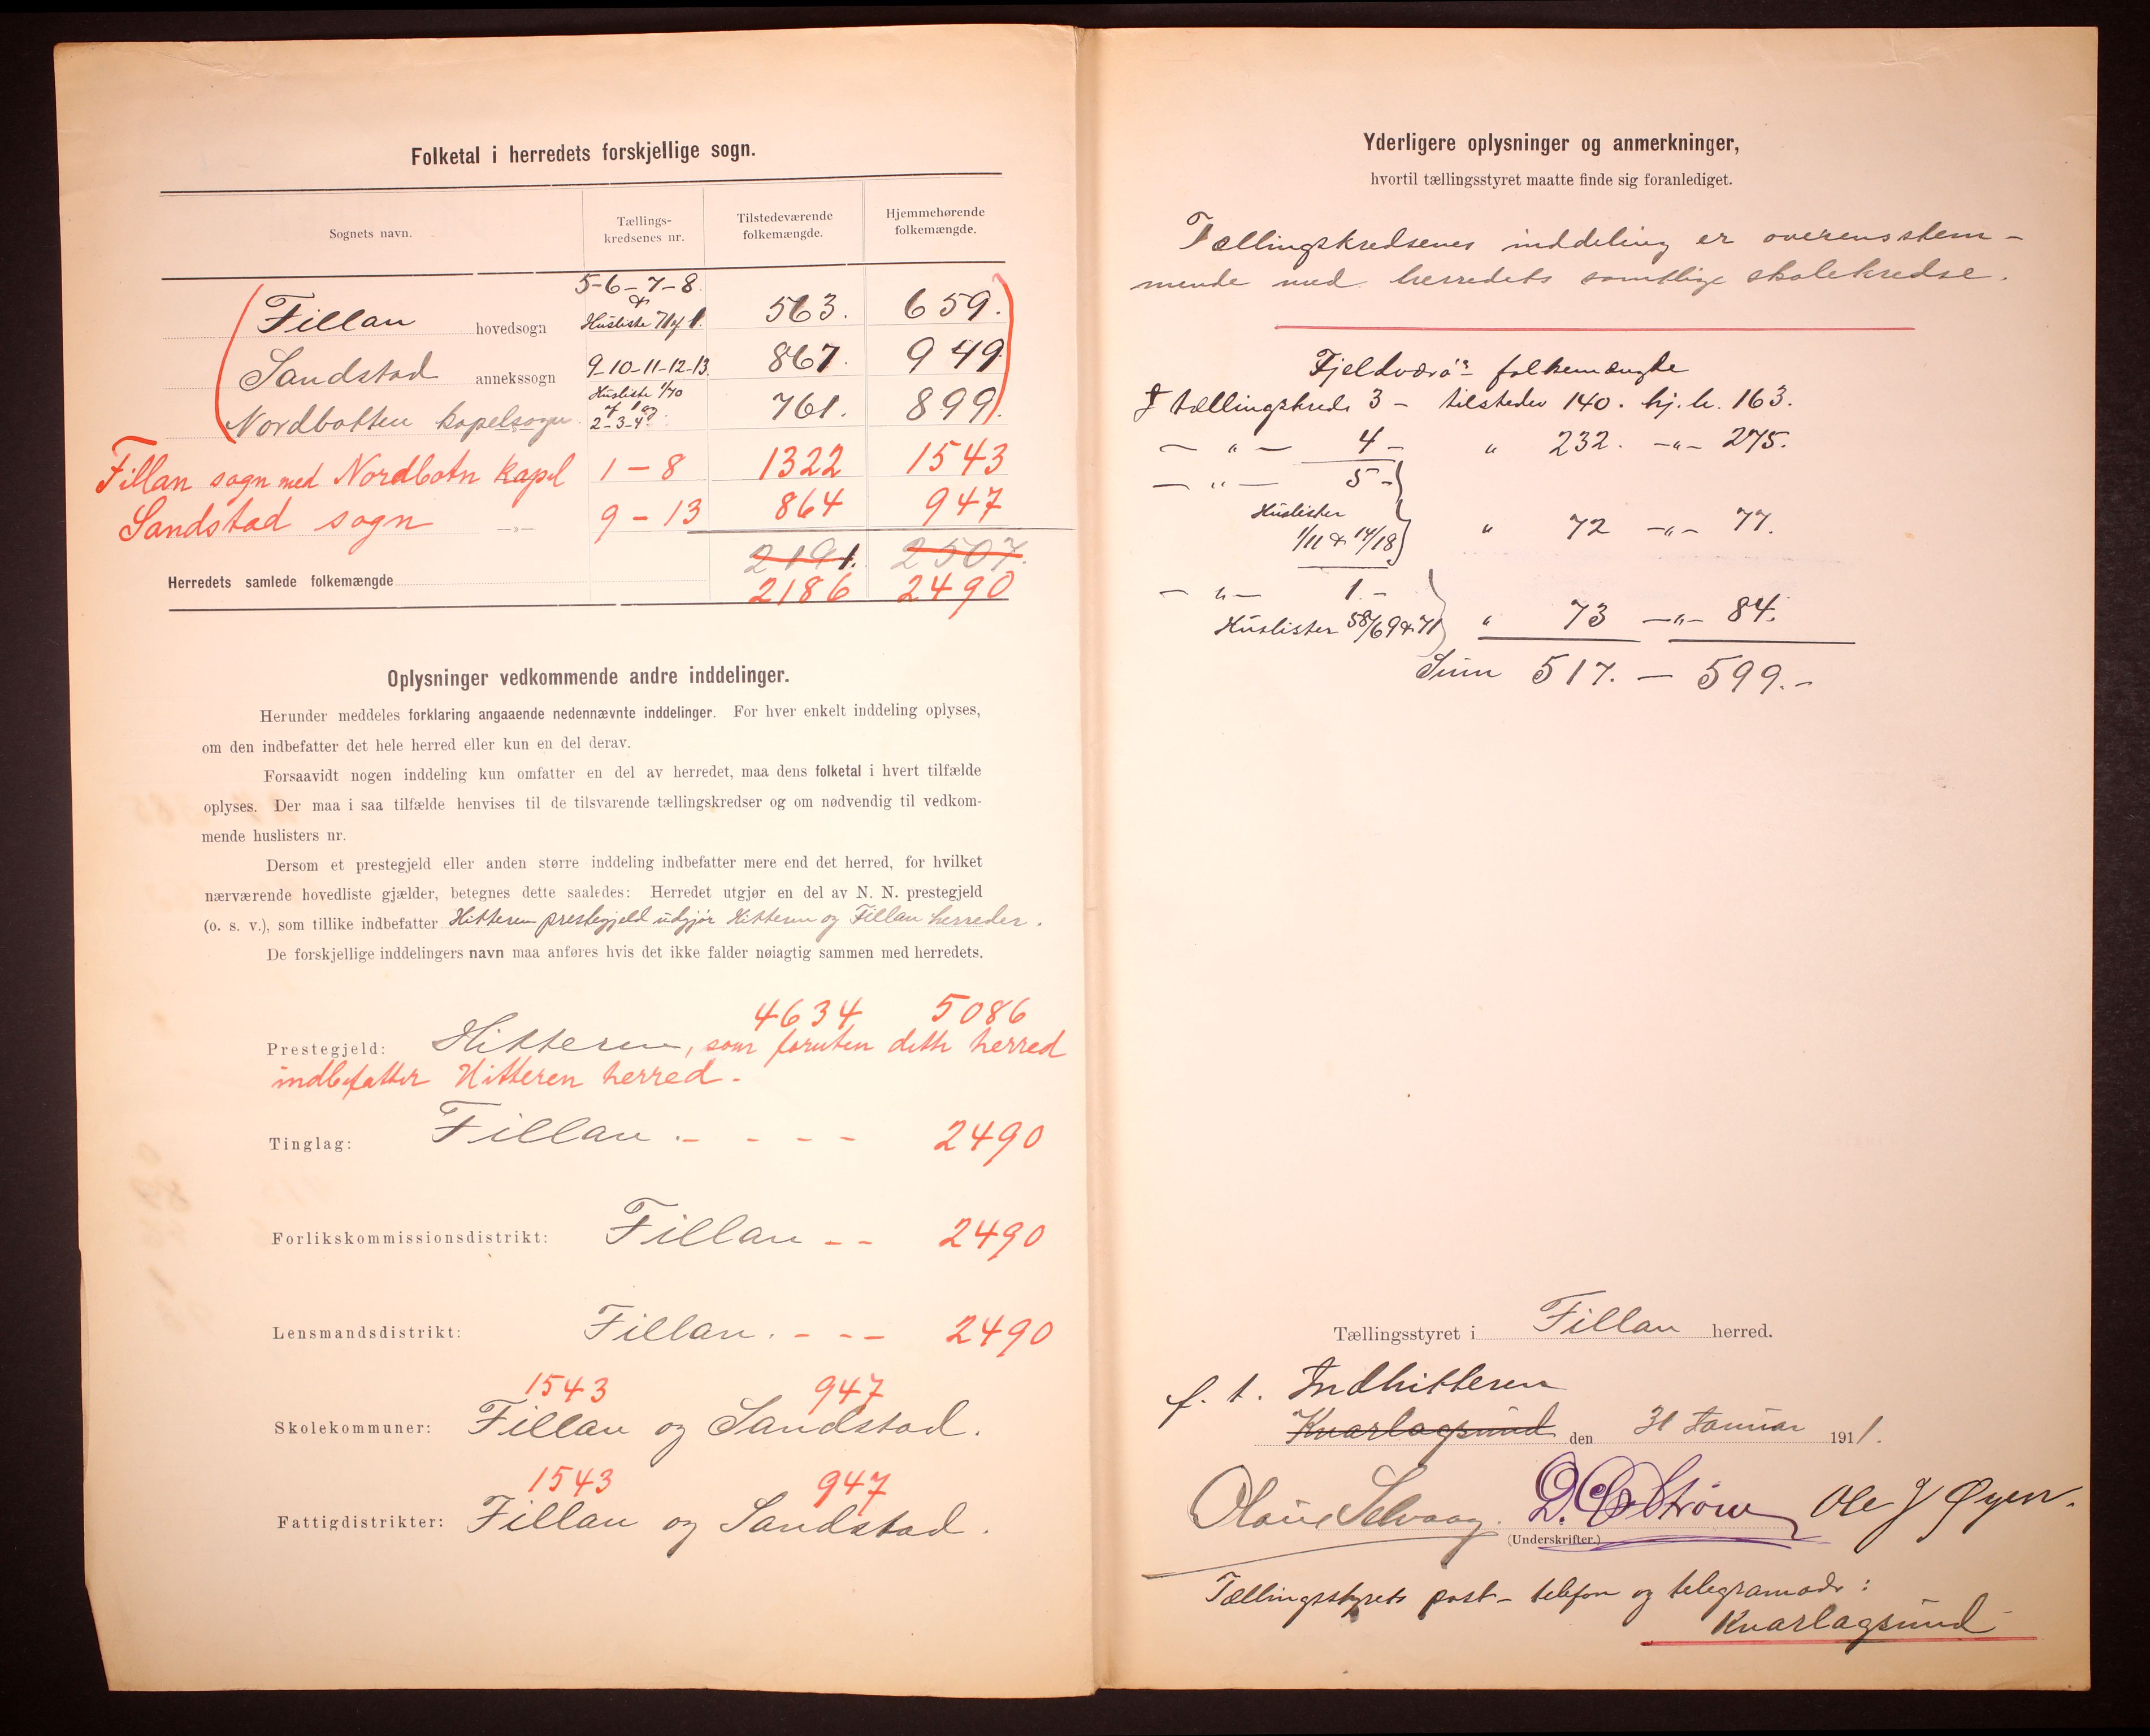 Folketal i herredets forskjellige sogn.
Sognets navn.
Tællings-
kredsenes nr.
Tilstedeværende
folkemængde.
Hjemmehørende
folkemængde.
5-6-7-8
&
Fillan hovedsogn Husliste 71 af 1. 563. 659.
Sandstad annekssogn 9-10-11-12-13 867. 949.
Husliste 1/70
af 1 og
Nordbotten kapelsogn 2-3-4 761. 899.
Fillan sogn med Nordbotn Kapel 1-8 1322 1543
Sandstad sogn -„- 9-13 864 947
2191. 2507.
Herredets samlede folkemængde 2186 2490
Oplysninger vedkommende andre inddelinger.
Herunder meddeles forklaring angaaende nedennævnte inddelinger. For hver enkelt inddeling oplyses,
om den indbefatter det hele herred eller kun en del derav.
Forsaavidt nogen inddeling kun omfatter en del av herredet, maa dens folketal i hvert tilfælde
oplyses. Der maa i saa tilfælde henvises til de tilsvarende tællingskredser og om nødvendig til vedkom-
mende huslisters nr.
Dersom et prestegjeld eller anden større inddeling indbefatter mere end det herred, for hvilket
nærværende hovedliste gjælder, betegnes dette saaledes: Herredet utgjør en del av N. N. prestegjeld
(o. s. v.), som tillike indbefatter Hitteren prestegjeld udgjør Hitteren og Fillan herreder.
De forskjellige inddelingers navn maa anføres hvis det ikke falder nøiagtig sammen med herredets.
4634 5086
Prestegjeld: Hitteren, som foruten dette herred
indbefatter Hitteren herred.-
Tinglag: Fillan. - - - - 2490
Forlikskommissionsdistrikt: Fillan - - 2490
Lensmandsdistrikt: Fillan. - - - 2490
1543 947
Skolekommuner: Fillan og Sandstad.
1543 947
Fattigdistrikter: Fillan og Sandstad.
Yderligere oplysninger og anmerkninger,
hvortil tællingsstyret maatte finde sig foranlediget.
Tællingskredsenes inddeling er overensstem-
mende med herredets samtlige skolekredse.
Fjeldværø's folkemængde
I tællingskreds 3 - tilstede 140. hj.h. 163.
- „ - 4 - „ 232. -„- 275.
- „ - 5 -
Huslister
1/11 & 14/18 „ 72 -„- 77.
- „ - 1. -
Huslister 58/69 & 71 „ 73 -„- 84.
Sum 517. - 599.-
Tællingsstyret i Fillan herred.
f. t. Indhitteren
Kvarlagsund den 31 Januar 1911.
Olaus Selvaag. Ole J Øyen.
(Underskrifter.)
Tællingsstyrets post- telefon og telegramadr:
Kvarlagsund